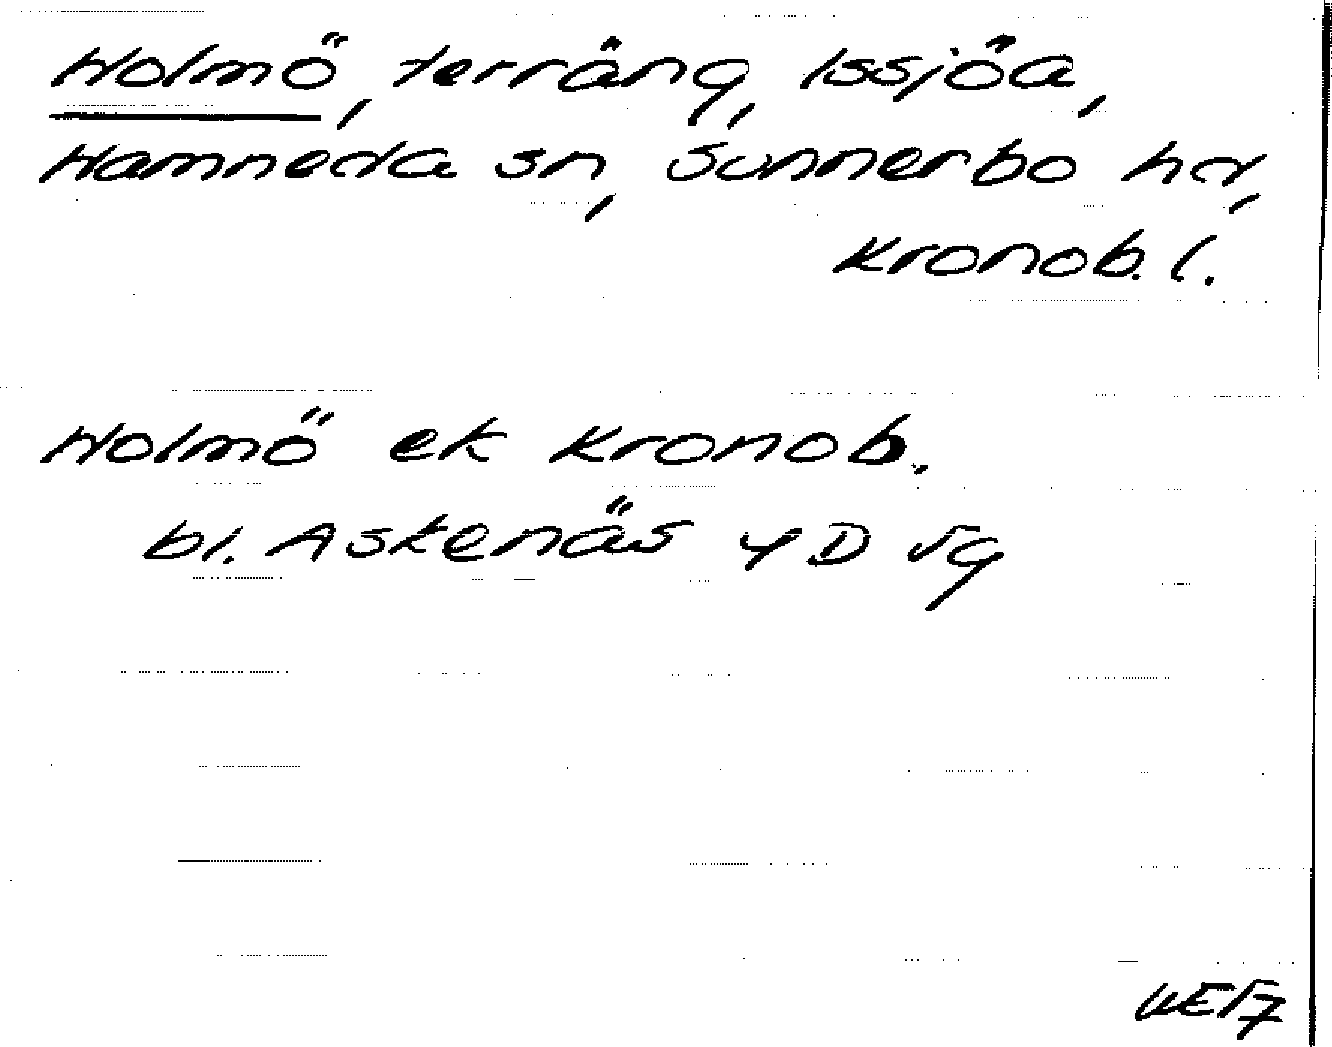 Holmö, terräng, Issjöa,
Hamneda sn, Sunnerbo hd,
Kronob. l.
Holmö ek Kronob.
bl. Askenäs 4D Vg